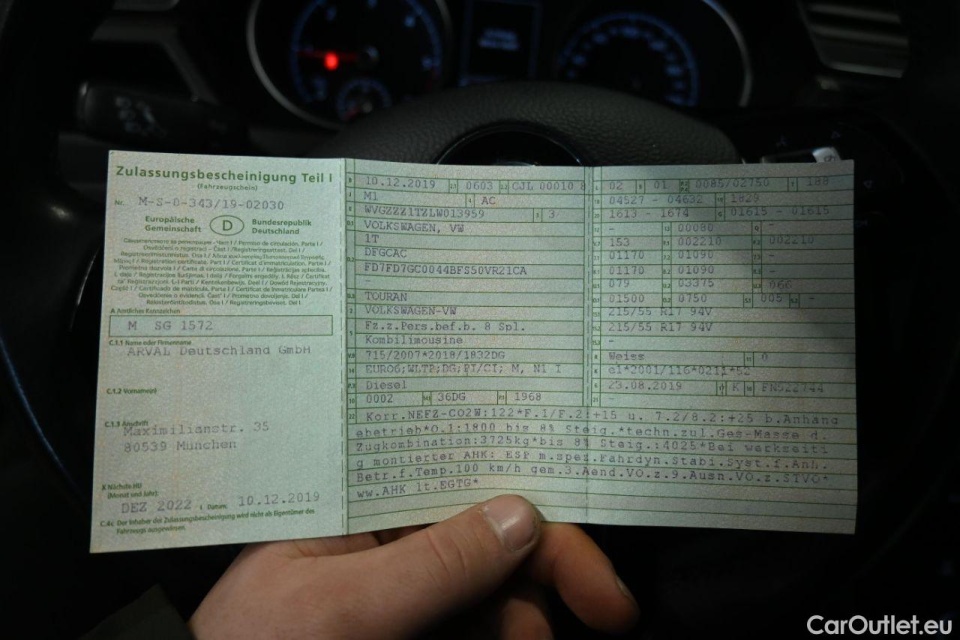 Zulassungsbescheinigung Teil I
(Fahrzeugschein)
Nr. M-S-0-343/19-02030
Europäische Gemeinschaft
D
Bundesrepublik Deutschland
A Amtliches Kennzeichen
M SG 1572
C.1.1 Name oder Firmenname
ARVAL Deutschland GmbH
C.1.2 Vorname(n)
C.1.3 Anschrift
Maximilianstr. 35
80539 München
X Nächste HU
(Monat und Jahr)
DEZ 2022
I Datum 10.12.2019
C.4c Der Inhaber der Zulassungsbescheinigung wird nicht als Eigentümer des
Fahrzeugs ausgewiesen.
10.12.2019 0603 CJL 00010 8
M1 AC
WVGZZZ1TZLW013959 3
VOLKSWAGEN, VW
1T
DFGCAC
FD7FD7GC0044BFS50VR21CA
-
TOURAN
VOLKSWAGEN-VW
Fz.z.Pers.bef.b. 8 Spl.
Kombilimousine
715/2007*2018/1832DG
EURO6;WLTP;DG;PI/CI; M, N1 I
Diesel
0002 36DG 1968
02 01 0085/02750 188
04527 - 04632 1829
1613 - 1674 01615 - 01615
- 00080 -
153 002210 002210
01170 01090 -
01170 01090 -
079 03375 066
01500 0750 005 -
215/55 R17 94V
215/55 R17 94V
-
Weiss 0
e1*2001/116*0211*52
23.08.2019 K FN522744
-
Korr.NEFZ-CO2W:122*F.1/F.2:+15 u. 7.2/8.2:+25 b.Anhäng
ebetrieb*O.1:1800 bis 8% Steig.*techn.zul.Ges-Masse d.
Zugkombination:3725kg*bis 8% Steig.:4025*Bei werkseiti
g montierter AHK: ESP m.spez.Fahrdyn.Stabi.Syst.f.Anh.
Betr.f.Temp.100 km/h gem.3.Aend.VO.z.9.Ausn.VO.z.STVO*
ww.AHK lt.EGTG*
CarOutlet.eu